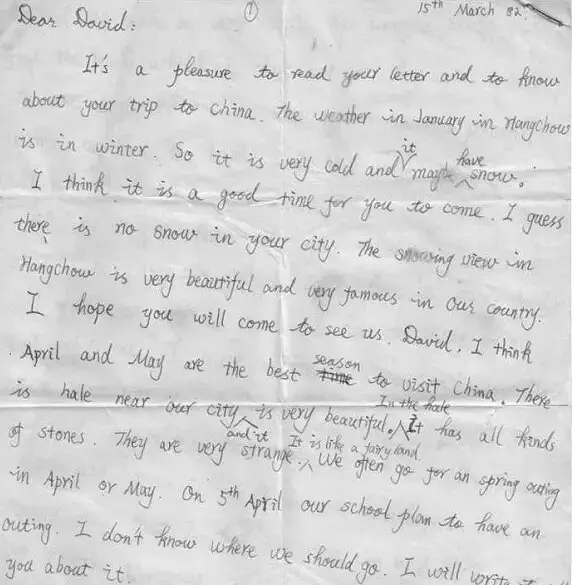 ①
15th March 82.
Dear David:
It's a pleasure to read your letter and to know
about your trip to China. The weather in January in Hangchow
is in winter. So it is very cold and it maybe have snow.
I think it is a good time for you to come. I guess
there is no snow in your city. The snowing view in
Hangchow is very beautiful and very famous in our country.
I hope you will come to see us. David, I think
April and May are the best time season to visit China. There
is hale near our city and it is very beautiful. In the hale It has all kinds
of stones. They are very strange. It is like a fairy land We often go for an spring outing
in April or May. On 5th April our school plan to have an
outing. I don't know where we should go. I will write to
you about it.